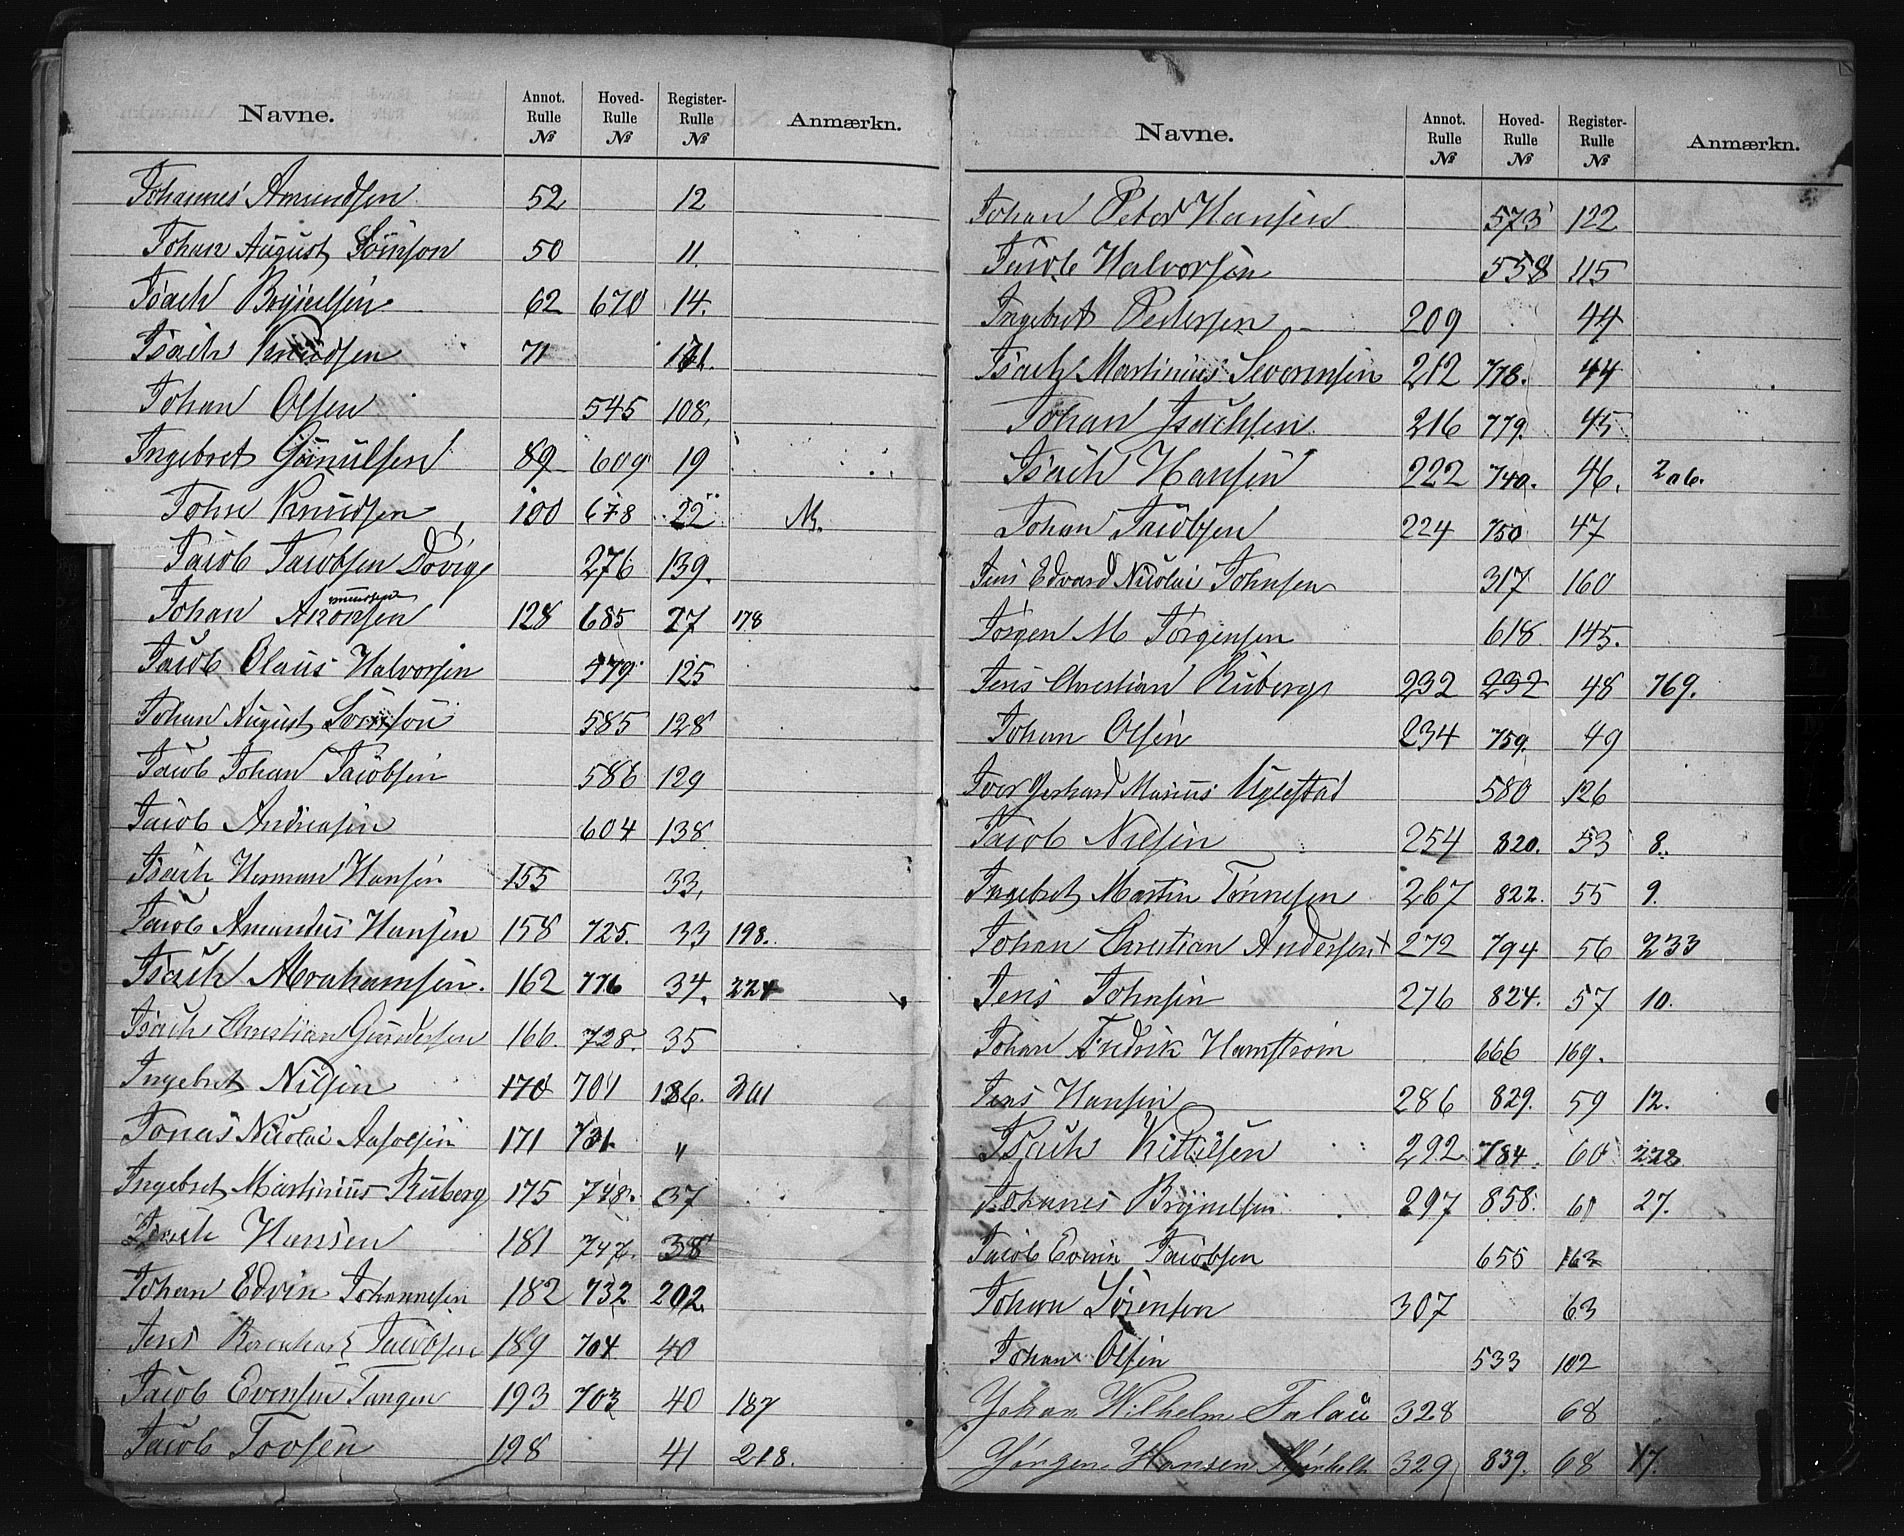 Navne. Annot. Rulle № Hoved- Rulle № Register- Rulle № Anmærkn.
Johannes Amundsen 52 12
Johan August 50 11
Isach Brynelsen 62 670 14.
Isach Knudsen 71
Johan Olsen 545 108.
Ingebret Gunulsen 89 609 19
John Knudsen 100 678 22
Jacob Jacobsen Dovig 276 139.
Johan 128 685 27 178
Jacob Olaus Halvorsen 579 125
Johan August 585 128
Jacob Johan Jacobsen 586 129
Jacob Andreasen 604 138
Isach Herman Hansen 155 33.
Jacob Amandus Hansen 158 725. 33 198.
Isach Abrahamsen. 162 776 34. 224
Isach Christian Gundersen 166. 728. 35
Ingebret Nilsen 170 701 136. 201
Jonas Nicolai 171 731. "
Ingebret Martinius Ruberg 175 748. 37
Isach Hansen 181 747. 38
Johan Edvin Johannesen 182 732 202
Jens Jacobsen 189 704 40
Jacob Evensen Tangen 193 703 40 187
Jacob Tovsen 198 41 218.
Navne. Annot. Rulle № Hoved- Rulle № Register- Rulle № Anmærkn.
Johan Peter Hansen 573 122
Jacob Halvorsen 558 115
Ingebret Pedersen 209 44
Isach Martinius Severinsen 212 778. 44
Johan Isachsen 216 779. 45
Isach Hansen 222 740. 46. 206.
Johan Jacobsen 224 750 47
Jens Edvard Nicolai Johnsen 317 160
Jørgen M Jørgensen 618. 145.
Jens Christian Ruberg 232 232 48 769.
Johan Olsen 234 759. 49
Iver Gerhard Marius Uglestad 580 126
Jacob Nilsen 254 820. 53 8.
Ingebret Martin Tønnesen 267 822. 55 9.
Johan Christian Andersen + 272 794 56 233
Jens Johnsen 276 824. 57 10.
Johan Fredrik Hamstrøm 666 169.
Jens Hansen 286 829. 59 12.
Isach Kittilsen 292 784. 60 222
Johannes Brynelsen 297 858. 61 27.
Jacob Evein Jacobsen 655 163
Johan Sørensen 307 63
Johan Olsen 533 102
Johan Wilhelm Falau 328 68
Jørgen Hansen 329 839. 68 17.